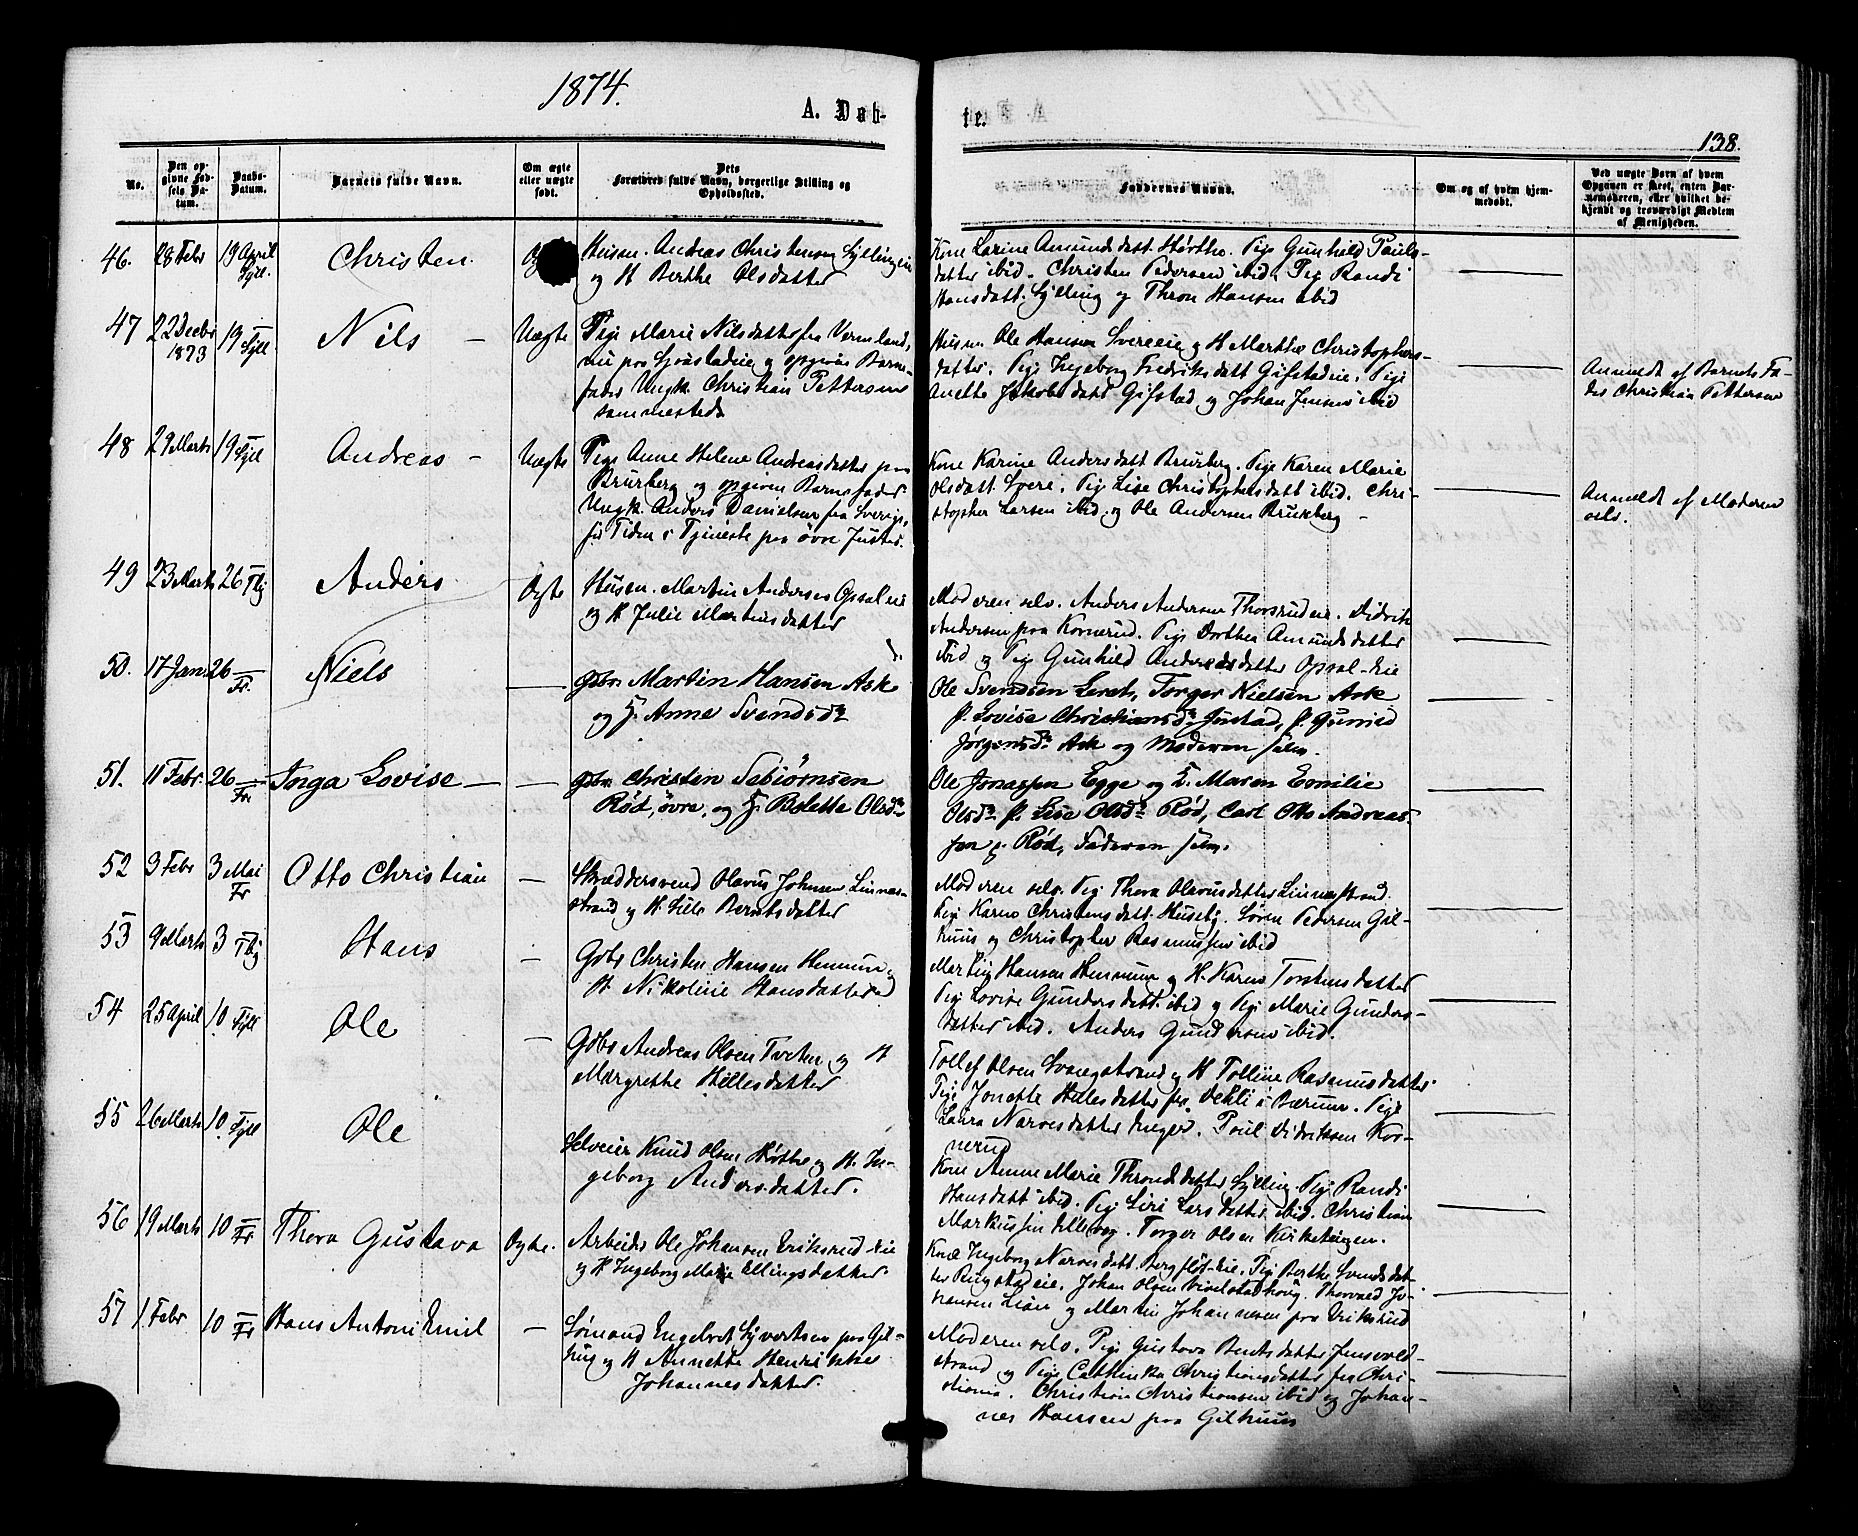 1874.
A. Døb-
te.
138.
No.
Den opgivne Fødsels Datum.
Daabs-Datum.
Barnets fulde Navn.
Om ægte eller uægte født.
Dets Forældres fulde Navn, borgerlige Stilling og Opholdssted.
Faddernes Navne.
Om og af hvem hjemmedøbt.
Ved uægte Børn af hvem Opgaven er skeet, enten Barnemoderen, eller hvilket bekjendt og troværdigt Medlem af Menigheden.
46. 28 Febr 19 April Syll. Christen
Husm. Andreas Christensen Syllingeie
og H Berthe Olsdatter
Kone Larine Amundsdatt. Støttho. Pige Gunhild Pauls-
datter ibid. Christen Pedersen ibid. Pig Randi
Hansdatt. Sylling og Thron Hansen ibid
47 22 Decbr 1873 19 Syll Nils - Uægte
Pige Marie Nilsdatter fra Vermland,
nu paa Gjevstadeie og opgiven Barne-
fader Ungk. Christian Pettersen
sammesteds
Husm Ole Hansen Svereeie og H Marthe Christophers-
datter. Pige Ingeborg Fredriksdatt Gifstadeie. Pige
Anette Jakobsdatt Gifstad og Johan Jensen ibid
Anmeldt af Barnets Fa-
der Christian Pettersen
48 29 Marts 19 Syll Andreas - Uægte
Pige Anne Helene Andreasdatter paa
Brurberg og opgiven Barnefader
Ungk. Anders Danielsen fra Sverige,
for Tiden i Tjeneste paa øvre Justad.
Kone Karine Andersdatt Brurberg. Pige Karen Marie
Olsdatt Svere. Pig Lise Christophersdatt ibid. Chri-
stopher Larsen ibid. og Ole Andersen Brurberg -
Anmeldt af Moderen
selv.
49 23 Marts 26 Tbj Anders Ægte
Husm. Martin Andersen Opsaleie
og H Julie Martinsdatter
Moderen selv. Anders Andersen Thorsrudeie. Didrik
Andersen paa Kornerud. Pige Dorthea Amundsdatter
ibid og Pige Gunhild Andersdatter Opsal-eie
50. 17 Jan. 26 Fr. Niels
Gbr. Martin Hansen Ask
og H. Anne Svendsdr
Ole Svendsen Leret, Torger Nielsen Ask
P. Lovise Christiansdr Justad, P. Gunild
Jørgensdr Ask og Moderen selv.
51. 11 Febr. 26 Fr Inga Lovise
Gbr. Christen Torbiørnsen
Rød, øvre, og H. Bolette Olsdr
Ole Jonassen Egge og H. Maren Emilie
Olsdr P. Lise Olsdr Rød, Carl Otto Andreas-
sen p. Rød, Faderen selv.
52 3 Febr 3 Mai Fr Otto Christian
Skræddersvend Olavus Johnsen Linnes-
strand og H. Sille Berntsdatter
Moderen selv. Pige Thora Olavusdatter Linnesstrand.
Pige Karen Christensdatt. Huseby. Søren Pedersen Gil-
huus og Christopher Rasmussen ibid
53 9 Marts 3 Tbj Hans
Gbr Christen Hansen Hennum og
H Nikoline Hansdatter
Martin Hansen Hennum og H. Karen Torstensdatter
Pige Lovise Gundersdatt. ibid og Pige Marie Gunders-
datter ibid. Anders Gundersen ibid.
54 25 April 10 Syll Ole
Gbr Andreas Olsen Tveten og H
Margrethe Hellesdatter
Tollef Olsen Svangstrand og H Tolline Rasmusdatter
Pige Jonette Hellesdatter fra Dehli i Bærum. Pige
Laura Narvesdatter Enger. Poul Didriksen Kor-
nerud
55 26 Marts 10 Syll Ole
Selveier Knud Olsen Støttho og H. In-
geborg Andersdatter.
Kone Anne Marie Thronsdatter Sylling. Pige Randi
Hansdatt ibid. Pige Siri Larsdatter ibid. Christian
Markussen Ellevog. Torger Olsen Kirketeigen.
56 19 Marts 10 Fr Thora Gustava Ægte.
Arbeider Ole Johansen Eriksrud-eie
og H Ingeborg Marie Ellingsdatter.
Kone Ingeborg Narvesdatt. Bergfløt-eie. Pige Berthe Svendsdat-
ter Ringstadeie. Johan Olsen Vivelstadhaug. Thorvald Jo-
hansen Lian og Martin Johannesen paa Eriksrud
57 1 Febr 10 Fr Hans Anton Emil
Sømand Engebret Syvertsen paa Gil-
huus og H Annette Henrikke
Johannesdatter.
Moderen selv. Pige Gustava Berntsdatter Jensvold-
strand og Pige Cathinka Christiansdatter fra Chri-
stiania. Christian Christiansen ibid og Johan-
nes Hansen paa Gilhuus